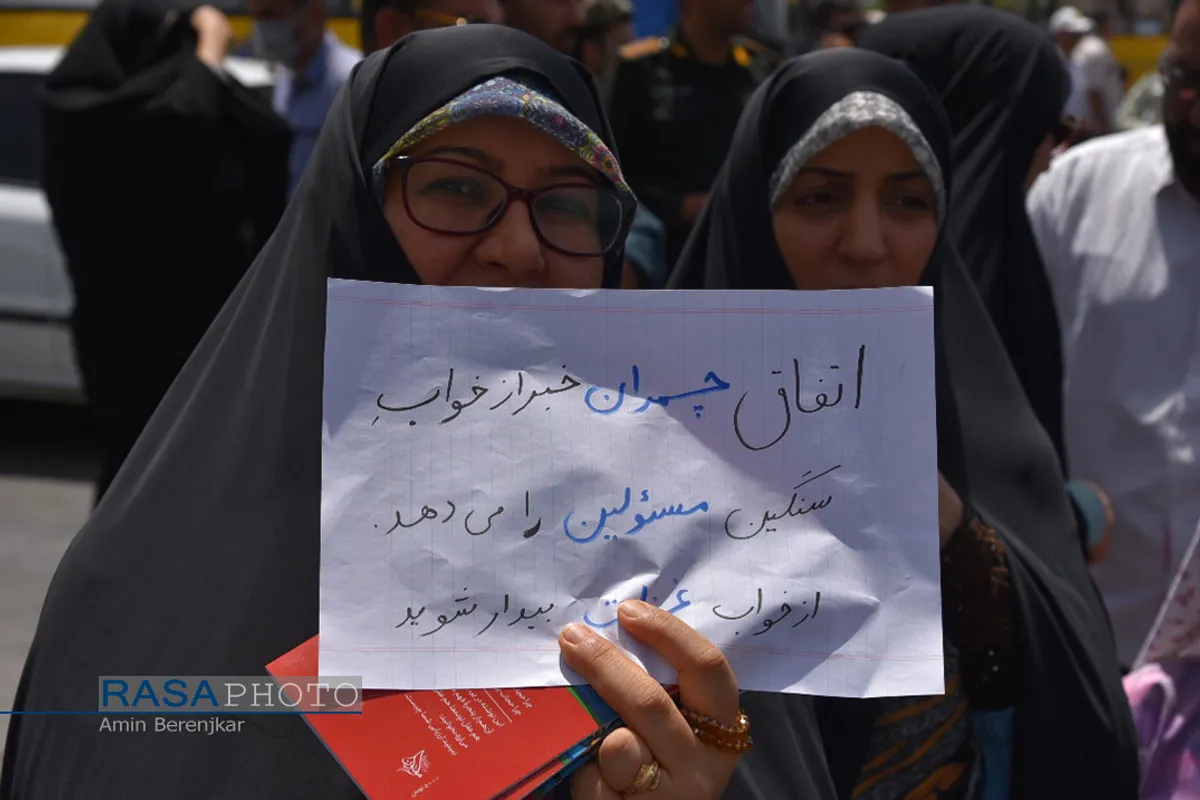 اتفاق چمران خبر از خوابِ
سنگین مسئولین را می دهد.
از خواب غفلت بیدار شوید
RASAPHOTO
Amin Berenjkar